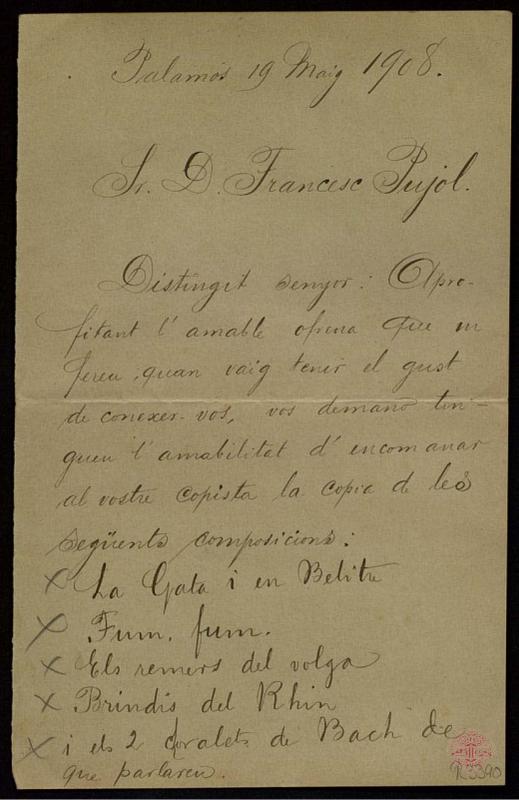 Palamós 19 Maig 1908.
Sr. D. Francesc Pujol.
Distingit senyor: Apro-
fitant l'amable oferta que m
fereu, quan vaig tenir el gust
de conexer-vos, vos demano tin-
gueu l'amabilitat d'encomanar
al vostre copista la copia de les
següents composicions:
x La Gata i en Belitre
x Fum, fum.
x Els remers del volga
x Brindis del Rhin
x i els 2 coralets de Bach de
que parlareu.
R.3390